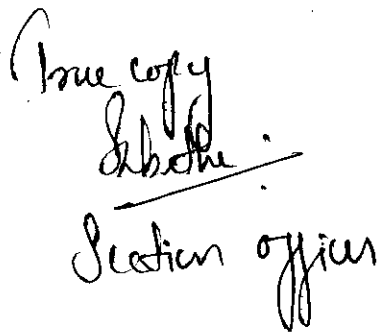 True copy
Section officer